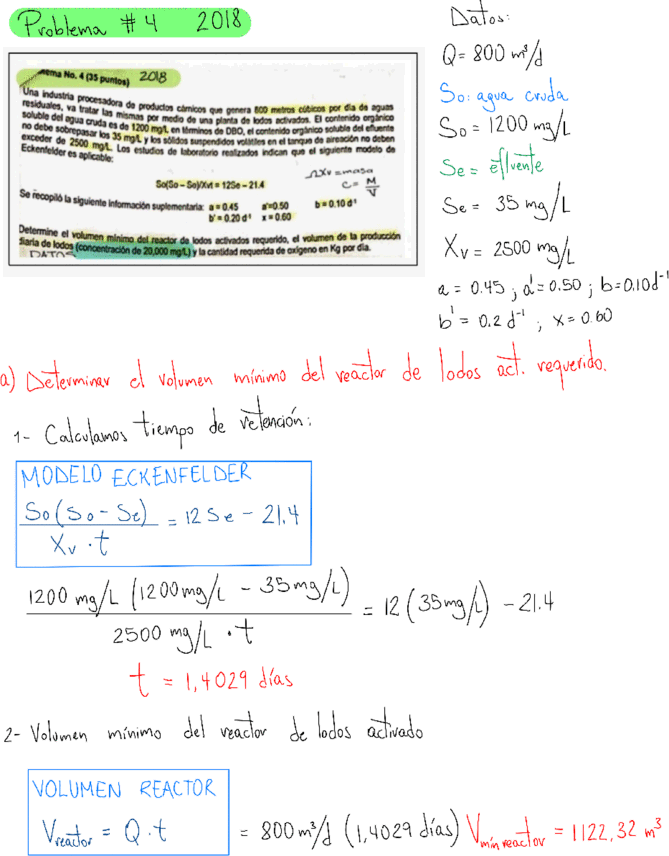 Problema # 4 2018
Datos:
Q = 800 m³/d
So: agua cruda
So = 1200 mg/L
Se = efluente
Se = 35 mg/L
Xv = 2500 mg/L
a = 0.45 ; a' = 0.50 ; b = 0.10 d⁻¹
b' = 0.2 d⁻¹ ; x = 0.60
ema No. 4 (35 puntos) 2018
Una industria procesadora de productos cárnicos que genera 800 metros cúbicos por día de aguas
residuales, va tratar las mismas por medio de una planta de lodos activados. El contenido orgánico
soluble del agua cruda es de 1200 mg/L en términos de DBO, el contenido orgánico soluble del efluente
no debe sobrepasar los 35 mg/L y los sólidos suspendidos volátiles en el tanque de aireación no deben
exceder de 2500 mg/L. Los estudios de laboratorio realizados indican que el siguiente modelo de
Eckenfelder es aplicable:
So(So – Se)/Xvt = 12Se – 21.4
ΔXv = masa
C = M/V
Se recopiló la siguiente información suplementaria: a = 0.45 a'=0.50 b = 0.10 d⁻¹
b' = 0.20 d⁻¹ x = 0.60
Determine el volumen mínimo del reactor de lodos activados requerido, el volumen de la producción
diaria de lodos (concentración de 20,000 mg/L) y la cantidad requerida de oxígeno en Kg por día.
DATOS
a) Determinar el volumen mínimo del reactor de lodos act. requerido.
1- Calculamos tiempo de retención:
MODELO ECKENFELDER
So(So - Se) / Xv · t = 12Se - 21.4
1200 mg/L (1200mg/L - 35mg/L) / 2500 mg/L · t = 12(35mg/L) - 21.4
t = 1,4029 días
2- Volumen mínimo del reactor de lodos activado
VOLUMEN REACTOR
Vreactor = Q · t = 800 m³/d (1,4029 días) Vmín reactor = 1122,32 m³